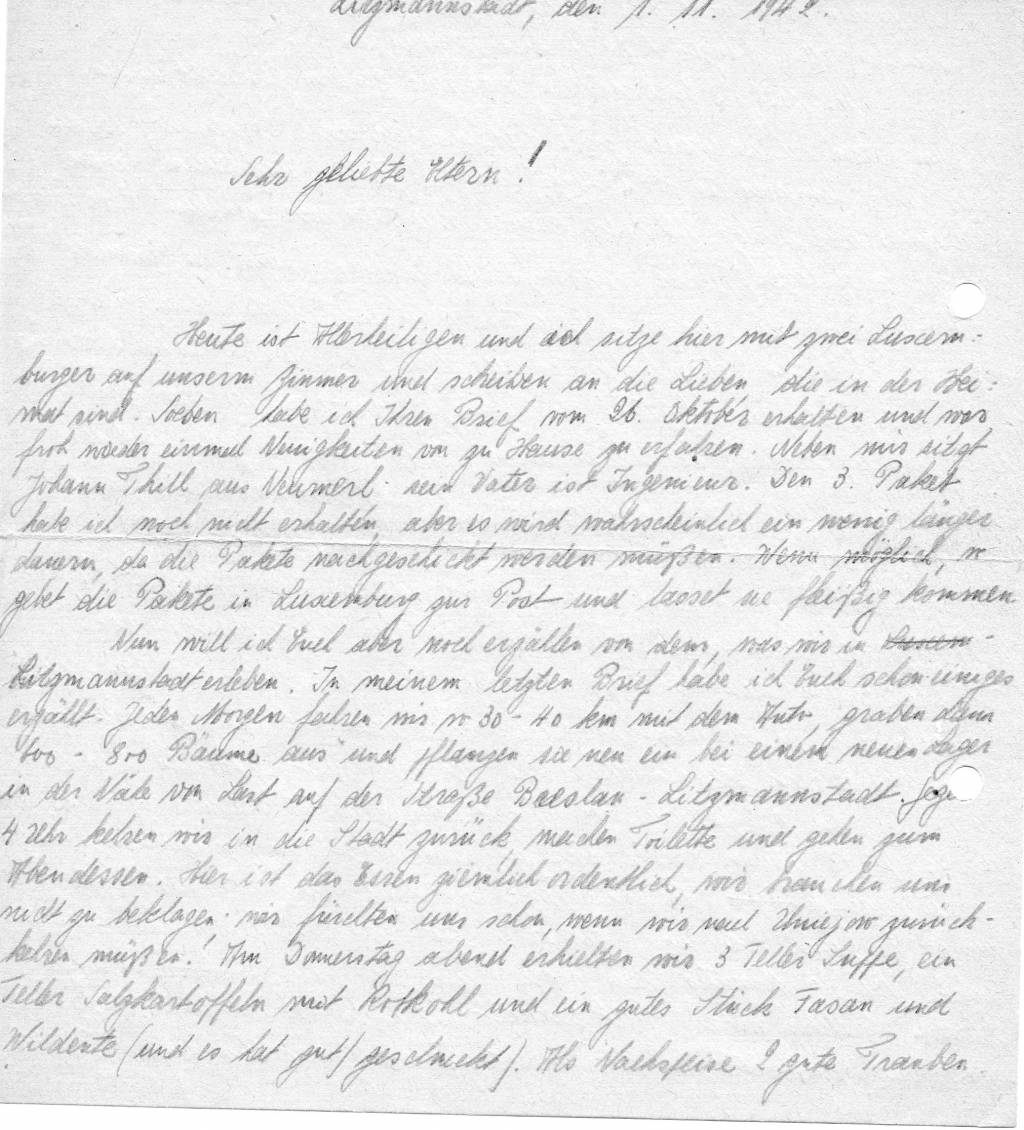 Litzmannstadt, den 1. 11. 1942.
Sehr geliebte Eltern!
Heute ist Allerheiligen und ich sitze hier mit zwei Luxem-
burger auf unserm Zimmer und scheiben an die Lieben die in der Hei-
mat sind. Soeben habe ich Ihren Brief vom 26. Oktober erhalten und war
froh wieder einmal Neuigkeiten von zu Hause zu erfahren. Neben mir sitzt
Johann Thill aus sein Vater ist Ingenieur. Den 3. Paket
habe ich noch nicht erhalten, aber es wird wahrscheinlich ein wenig länger
dauern, da die Pakete nachgeschickt werden müßen. Wenn möglich, so
gebet die Pakete in Luxemburg zur Post und lasset sie fleißig kommen
Nun will ich Euch aber noch erzällen von dem, was wir in
Litzmannstadt erleben. In meinem letzten Brief habe ich Euch schon einiges
erzällt. Jeden Morgen fahren wir so 30 - 40 km mit dem Auto, graben dann
600 - 800 Bäume aus und pflanzen sie neu ein bei einem neuen Lager
in der Nähe von Last auf der Straße Breslau - Litzmannstadt.
4 Uhr kehren wir in die Stadt zurück, machen Toilette und gehen zum
Abendessen. Hier ist das Essen ziemlich ordentlich, wir brauchen uns
nicht zu beklagen wir fürchten uns schon, wenn wir nach Uniejow zurück-
kehren müßen! Am Donnerstag abend erhielten wir 3 Teller Suppe, ein
Teller Salzkartoffeln mit Rotkohl und ein gutes Stück Fasan und
Wildente (und es hat gut geschmeckt). Als Nachspeise 2 gute Trauben.